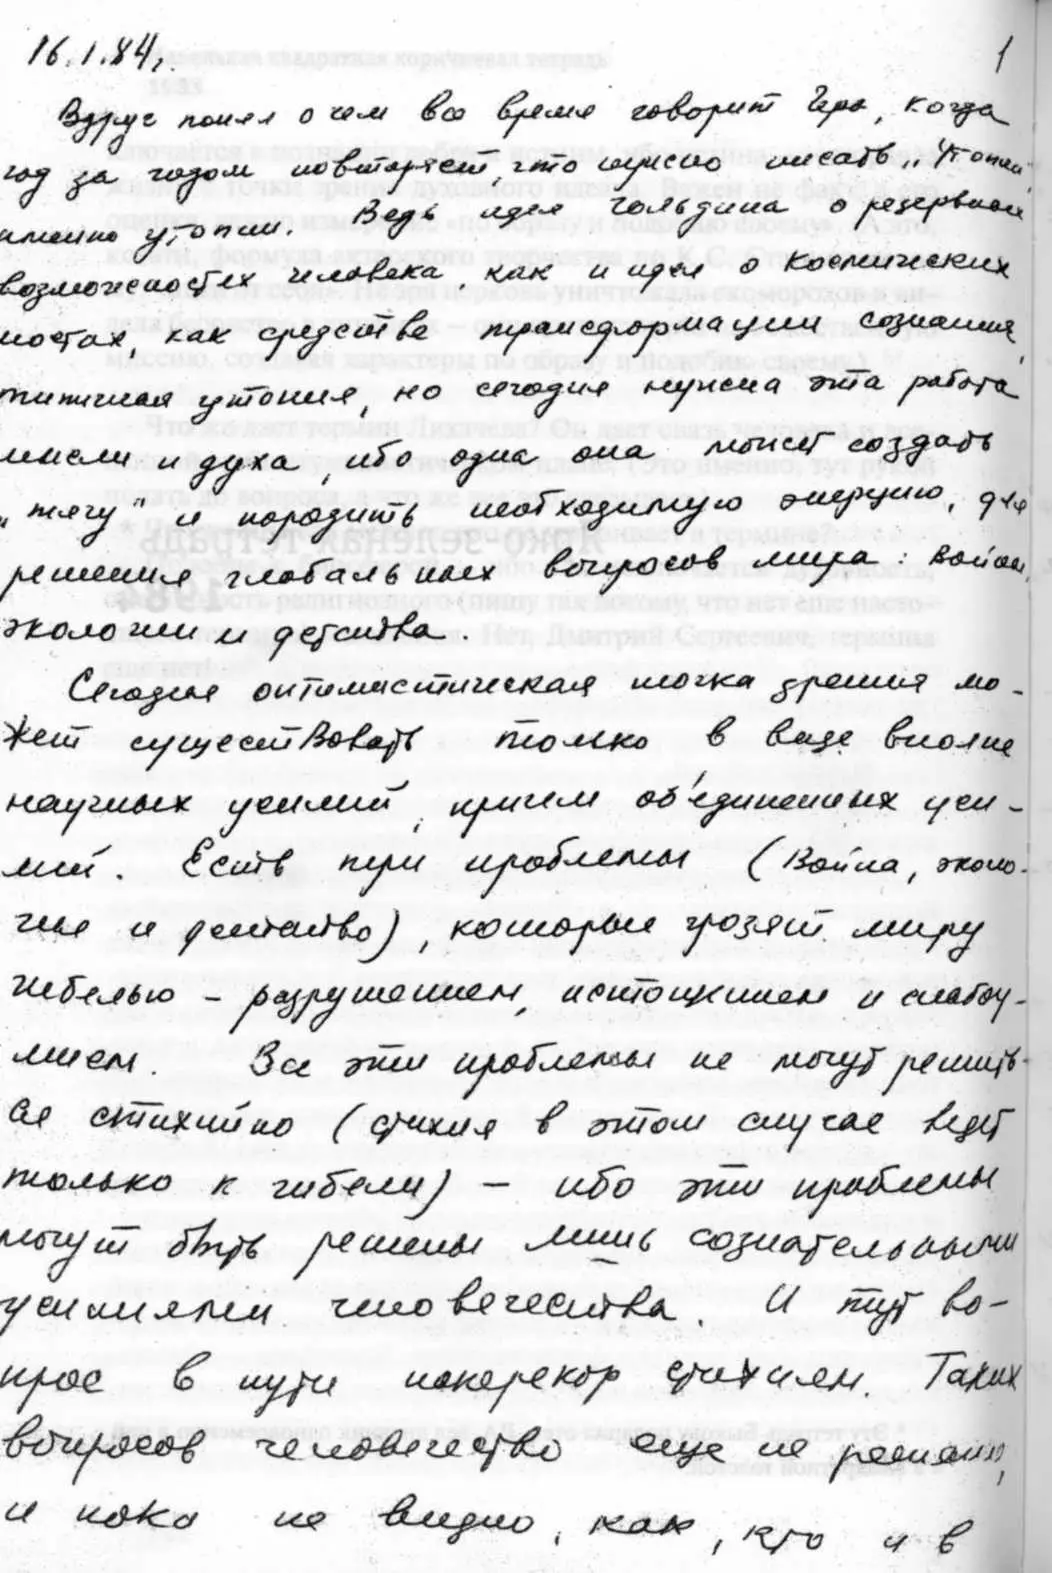 16.1.84,
1
Вдруг понял о чем все время говорит Гера, когда
год за годом повторяет, что нужно писать „Утопии,
именно утопии. Ведь идея Гольдина о резервных
возможностях человека, как и идея о космических
постах, как средстве трансформации сознания,
типичная утопия, но сегодня нужна эта работа
мысли и духа, ибо одна она может создать
„тягу" и породить необходимую энергию, для
решения глобальных вопросов мира: войны,
экологии и детства.
Сегодня оптимистическая точка зрения мо-
жет существовать только в виде вполне
научных усилий, причем об'единенных уси-
лий. Есть три проблемы (война, эколо-
гия и детство), которые грозят миру
гибелью – разрушением, истощением и слабоу-
мием. Все эти проблемы не могут решить-
ся стихийно (стихия в этом случае ведет
только к гибели) – ибо эти проблемы
могут быть решены лишь сознательными
усилиями человечества. И тут во-
прос в пути наперекор стихиям. Таких
вопросов человечество еще не решало,
и пока не видно, как, кто и в